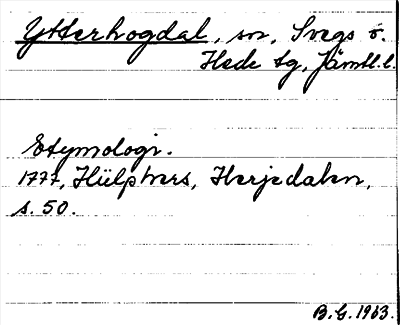 Ytterhogdal, sn, Svegs o.
Hede tg, Jämtl. l.
Etymologi.
1777, Hülphers, Herjedalen,
s. 50.
B.G. 1963.